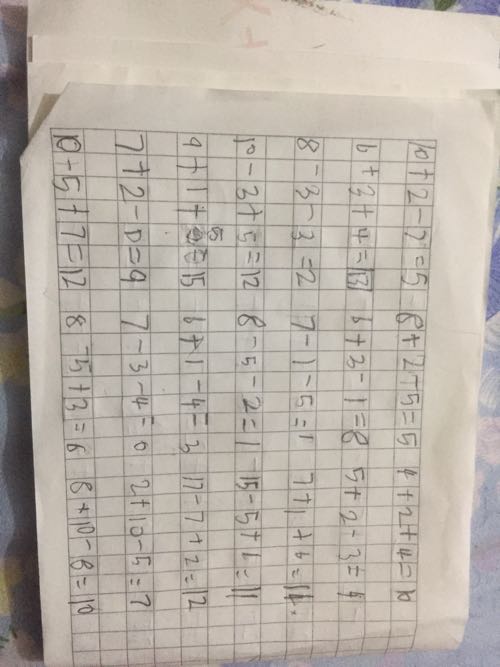 10+2-7=5 8+2-5=5 4+2+4=10
6+3+4=13 6+3-1=8 5+2-3=4
8-3-3=2 7-1-5=1 7+1+6=14.
10-3+5=12 8-5-2=1 15-5+1=11
9+1+5=15 6+1-4=3 17-7+2=12
7+2-0=9 7-3-4=0 2+10-5=7
10+5+7=12 8-5+3=6 8+10-8=10